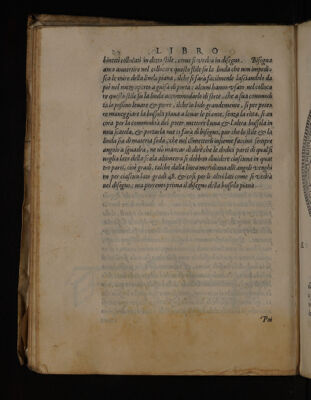 LIBRO
lineati collocati in detto stile, come si vedra in disegno. Bisogna
anco avvertire nel collocar questo stile su la linda che non impedi-
sca le mire della linda piana, il che si farà facilmente lasciandolo da
piè nel mezo aperto a guisa di porta; alcuni hanno usato nel colloca
re questo stile su la linda accommodarlo di sorte, che a sua commodi
tà lo possino levare & porre, il che lo lodo grandemente, si per poter
si maneggiare la bussola piana a levar le piante, senza la cima, si an
cora per la commodità del poter mettere l'una & l'altra bussola in
una scatola, & portarla
angolo a squadra, ne
meglio lato della scala altimetra si debbon dividere ciascuna in quat
tro parti, cioè gradi, talche dalla linea meridiana alli angoli vengh
no per ciascun lato gradi 48. & così per li altri lati come si vedrà
nel disegno; ma porremo prima il disegno della bussola piana.
Poi